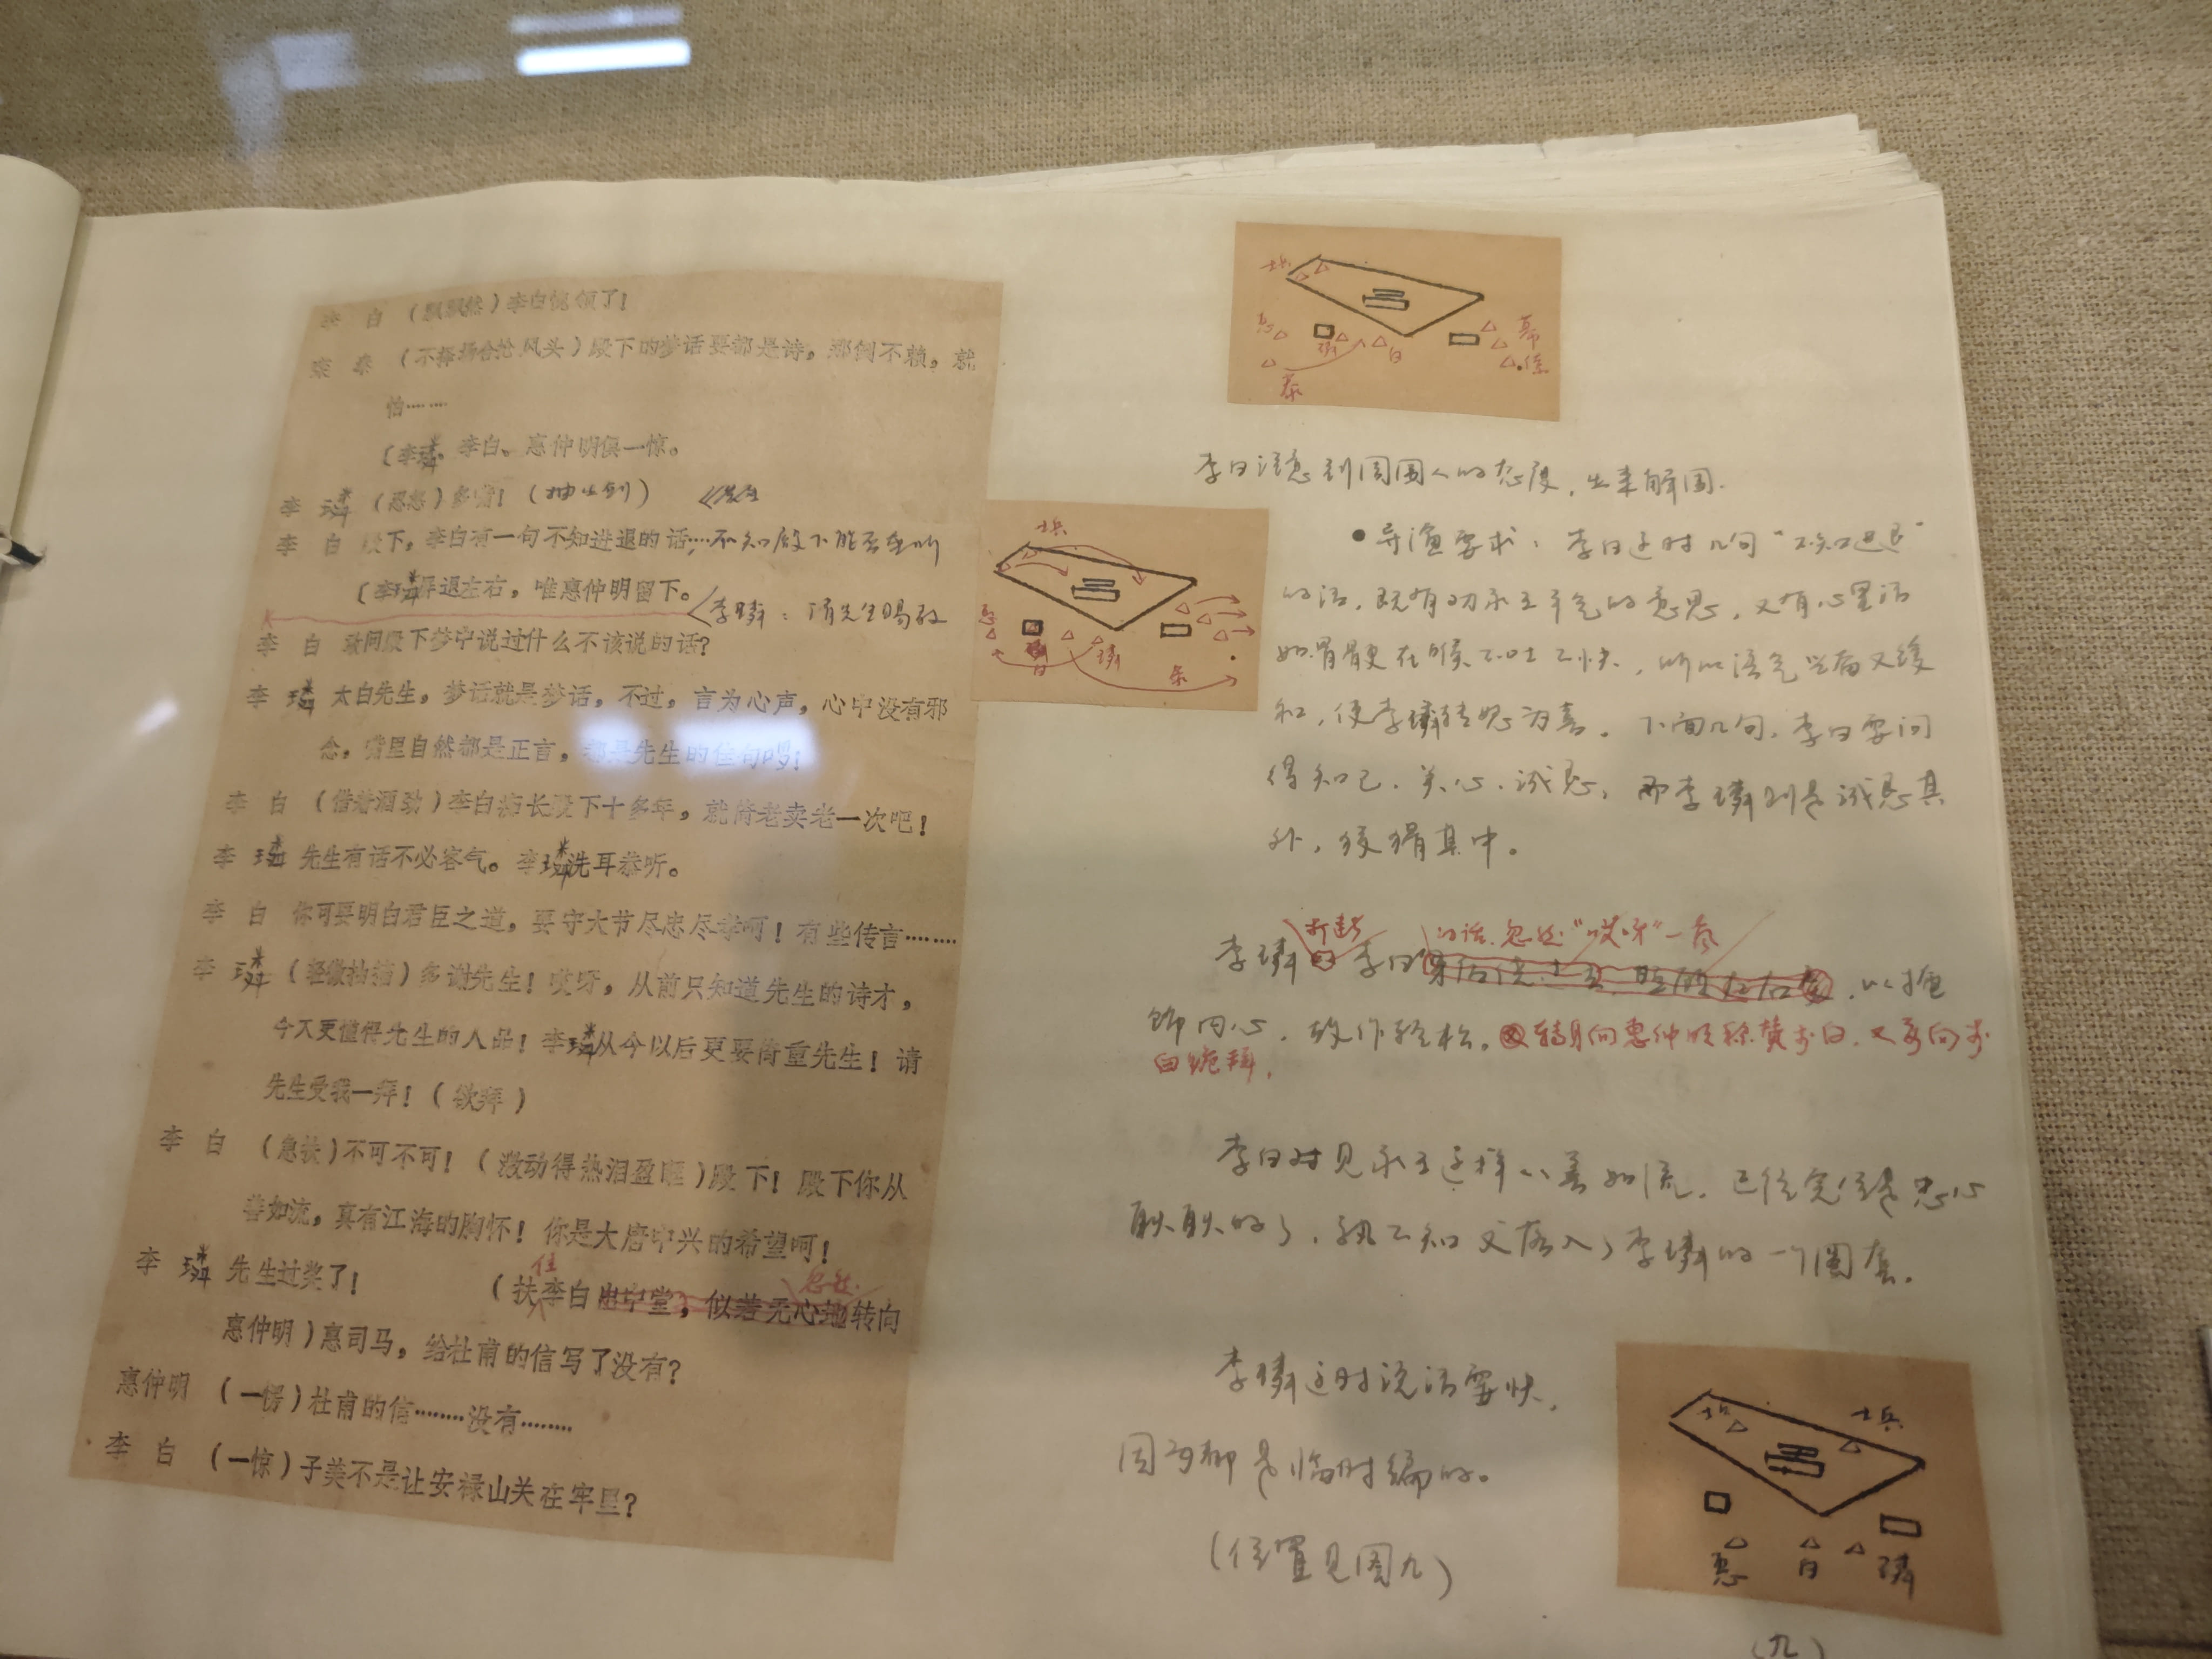 李 白 (飘飘然)李白愧领了!
宗 秦 (不择场合抢风头)殿下的梦话要都是诗,那倒不赖,就
怕……
〔李璘、李白、惠仲明俱一惊。
李 璘 (恶怒)多嘴!(抽出剑)
李 白 殿下,李白有一句不知进退的话……不知殿下能否垂听
〔李璘屏退左右,唯惠仲明留下。
李璘:请先生赐教
李 白 敢问殿下梦中说过什么不该说的话?
李 璘 太白先生,梦话就是梦话,不过,言为心声,心中没有邪
念,嘴里自然都是正言,都是先生的佳句啰!
李 白 (借着酒劲)李白痴长殿下十多年,就倚老卖老一次吧!
李 璘 先生有话不必客气。李璘洗耳恭听。
李 白 你可要明白君臣之道,要守大节尽忠尽孝呵!有些传言………
李 璘 (轻微抽搐)多谢先生!哎呀,从前只知道先生的诗才,
今天更懂得先生的人品!李璘从今以后更要倚重先生!请
先生受我一拜!(欲拜)
李 白 (急扶)不可不可!(激动得热泪盈眶)殿下!殿下你从
善如流,真有江海的胸怀!你是大唐中兴的希望呵!
李 璘 先生过奖了! (扶住李白出中堂,似若无心地忽然转向
惠仲明)惠司马,给杜甫的信写了没有?
惠仲明 (一愣)杜甫的信………没有………
李 白 (一惊)子美不是让安禄山关在牢里?
士兵
惠
璘
白
士兵
惠
白
璘
李白注意到周围人的态度,出来解围.
•导演要求:李白这时几句“不知进退”
的话,既有劝永王平气的意思,又有心里话
如骨鲠在喉不吐不快,所以语气坚而又缓
和,使李璘转怒为喜。下面几句,李白要问
得知己、关心、诚恳,而李璘则是诚恳其
外,狡猾其中。
李璘打断李白的话,忽然“哎呀”一声,以掩
饰内心,故作轻松。转身向惠仲明称赞李白,又要向李
白跪拜.
李白对见永王这样从善如流,已经完全是忠心
耿耿的了,孰不知又落入了李璘的一个圈套.
李璘这时说话要快,
因为都是临时编的。
(位置见图九)
士兵
士兵
惠 白 璘
(九)